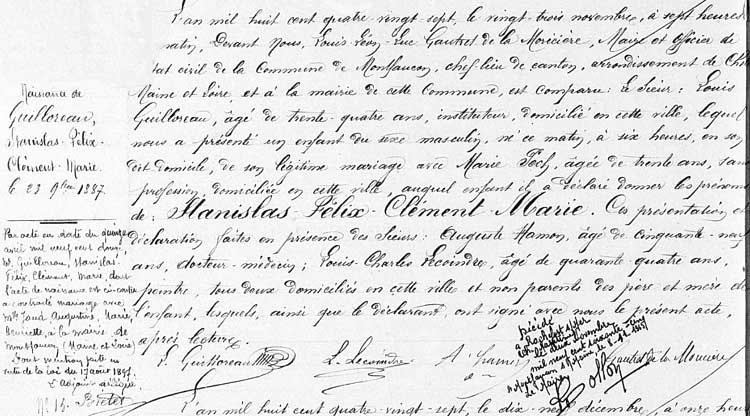 L'an mil huit cent quatre-vingt-sept, le vingt-trois novembre, à sept heures
matin, Devant Nous, Louis-Léon-Luc Gautret de la Moricière, Maire et officier de
tat civil de la Commune de Montfaucon, chef-lieu de canton, arrondissement de Chol
Maine et Loire et à la mairie de cette Commune, est comparu: le Sieur: Louis
Guilloreau, âgé de trente-quatre ans, instituteur, domicilié en cette ville, lequel
nous a présenté un enfant du sexe masculin, né ce matin, à six heures, en son
dit domicile, de son légitime mariage avec Marie, âgée de trente ans, sans
profession, domiciliée en cette ville, auquel enfant il a déclaré donner les prénoms
de: Stanislas-Félix-Clément-Marie. Ces présentation et
déclaration faites en présence des Sieurs: Auguste Hamon, âgé de cinquante-neuf
ans, docteur-médecin; Louis-Charles Lecoindre, âgé de quarante-quatre ans,
peintre, tous deux domiciliés en cette ville et non parents des père et mère de
l'enfant, lesquels, ainsi que le déclarant, ont signé avec nous le présent acte,
après lecture.
Guilloreau L. Lecoindre A. Hamon Gautret de la Moricière
L'an mil huit cent quatre-vingt-sept, le dix-neuf décembre, à onze heu
Naissance de
Guilloreau,
Stanislas-Félix-
Clément-Marie.
le 23 9bre 1887.
Par acte en date du
avril mil neuf cent douze
Mr Guilloreau, Stanislas
Félix, Clément, Marie, dont
l'acte de naissance est ci-contre
a contracté mariage avec
Mlle Augustine, Marie,
Henriette, à la mairie de
Montfaucon (Maine et Loire)
Dont mention faite en
vertu de la loi du 17 août 1897.
L'Adjoint délégué
N° 13.
Décédé
à Rochefort s/Mer
novembre
mil neuf cent soixante-cinq
Le Maire